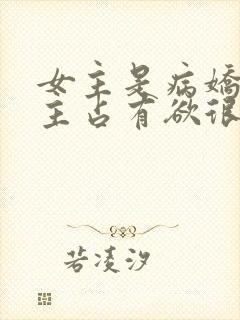 女主是病娇
主占有欲很
若凌汐